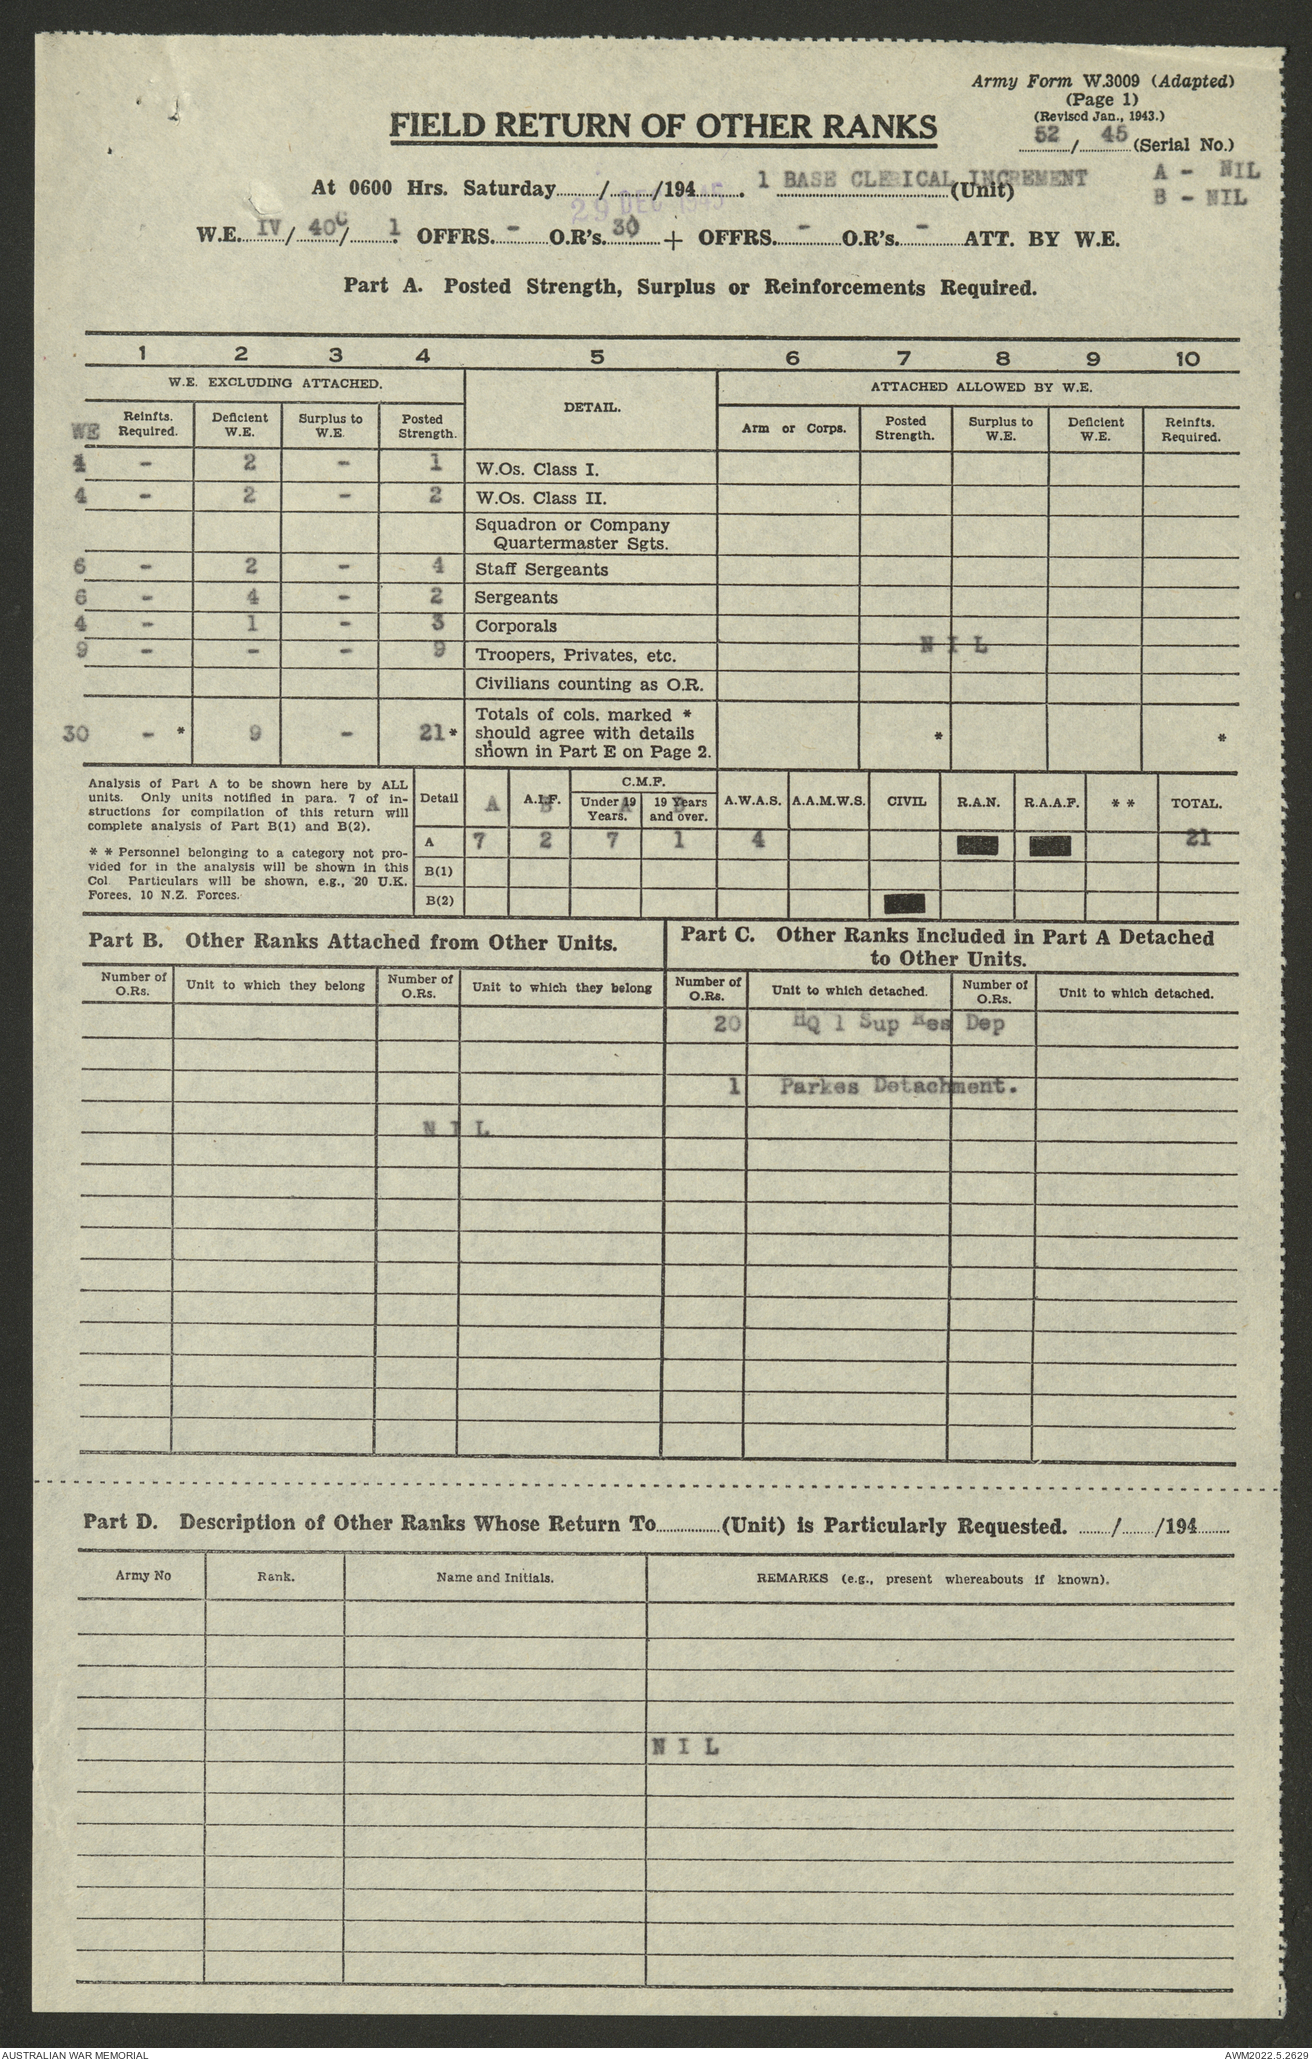 Army Form W.3009 (Adapted)
(Page 1)
(Revised Jan., 1943.)
FIELD RETURN OF OTHER RANKS
52 / 45 (Serial No.)
At 0600 Hrs. Saturday / /194 . 1 BASE CLERICAL INCREMENT (Unit)
A - NIL
B - NIL
29 DEC 1945
W.E. IV / 40C / 1 OFFRS. - O.R's. 30 + OFFRS. - O.R's. - ATT. BY W.E.
Part A. Posted Strength, Surplus or Reinforcements Required.
1 2 3 4 5 6 7 8 9 10
W.E. EXCLUDING ATTACHED. DETAIL. ATTACHED ALLOWED BY W.E.
WE Reinfts. Required. Deficient W.E. Surplus to W.E. Posted Strength. Arm or Corps. Posted Strength. Surplus to W.E. Deficient W.E. Reinfts. Required.
4 - 2 - 1 W.Os. Class I.
4 - 2 - 2 W.Os. Class II.
Squadron or Company
Quartermaster Sgts.
6 - 2 - 4 Staff Sergeants
6 - 4 - 2 Sergeants
4 - 1 - 3 Corporals
N I L
9 - - - 9 Troopers, Privates, etc.
Civilians counting as O.R.
30 - * 9 - 21 * Totals of cols. marked * should agree with details shown in Part E on Page 2. * *
Analysis of Part A to be shown here by ALL
units. Only units notified in para. 7 of in-
structions for compilation of this return will
complete analysis of Part B(1) and B(2).
* * Personnel belonging to a category not pro-
vided for in the analysis will be shown in this
Col. Particulars will be shown, e.g., 20 U.K.
Forces, 10 N.Z. Forces.
C.M.F.
Detail A A.I.F. B Under 19 Years. A 19 Years and over. B A.W.A.S. A.A.M.W.S. CIVIL R.A.N. R.A.A.F. * * TOTAL.
A 7 2 7 1 4 21
B(1)
B(2)
Part B. Other Ranks Attached from Other Units.
Number of O.Rs. Unit to which they belong Number of O.Rs. Unit to which they belong
N I L
Part C. Other Ranks Included in Part A Detached
to Other Units.
Number of O.Rs. Unit to which detached. Number of O.Rs. Unit to which detached.
20 HQ 1 Sup Res Dep
1 Parkes Detachment.
Part D. Description of Other Ranks Whose Return To (Unit) is Particularly Requested. / /194
Army No Rank. Name and Initials. REMARKS (e.g., present whereabouts if known).
N I L
AUSTRALIAN WAR MEMORIAL
AWM2022.5.2629